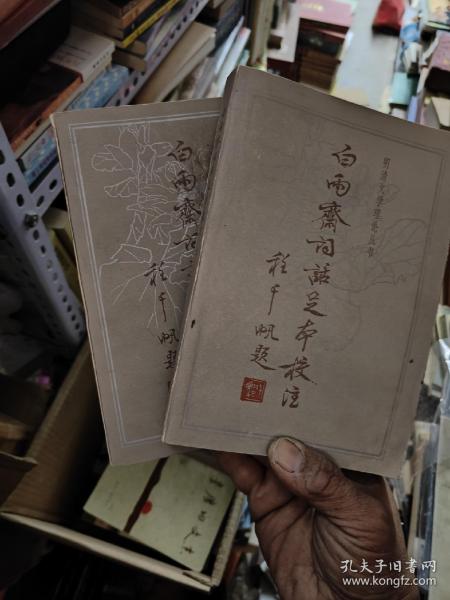 明清文学理论丛书
白雨齋词話足本校注
程千帆题
白雨齋词
程千帆题
孔夫子旧书网
www.kongfz.com